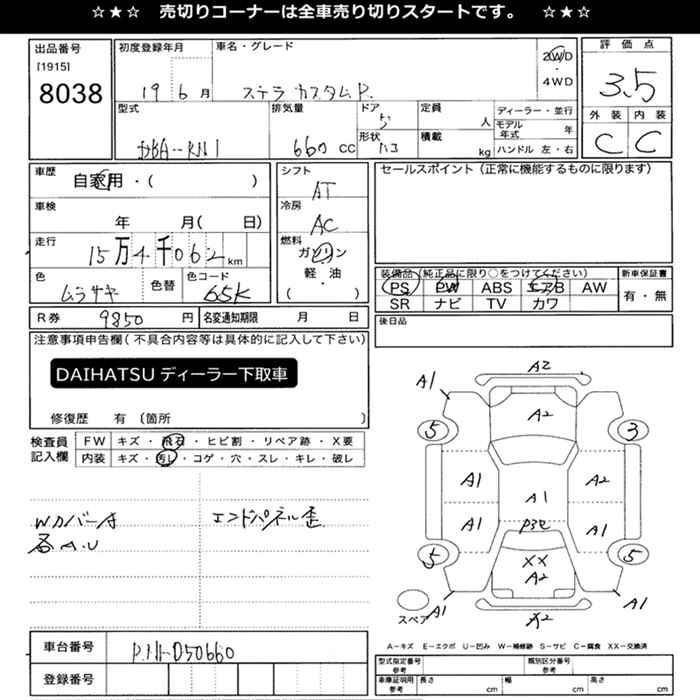 ☆★☆ 売切りコーナーは全車売り切りスタートです。 ☆★☆
出品番号
[1915]
8038
初度登録年月
19 6 月
車名・グレード
ステラ カスタムR.
2WD
・
4WD
評価点
3.5
外装 内装
C C
型式
DBA-RN1
排気量
660 CC
ドア
5
形状
ハコ
定員
人
積載
kg
ディーラー・並行
モデル年式 年
ハンドル 左・右
車歴
自家用・( )
車検
年 月( 日)
走行
15万4千062 km
色
ムラサキ
色替
色コード
65K
シフト
AT
冷房
AC
燃料
ガソリン
軽・油
( )
R券 9850 円
名変通知期限 月 日
セールスポイント(正常に機能するものに限ります)
装備品(純正品に限り○をつけてください)
PS PW ABS エアB AW
SR ナビ TV カワ
新車保証書
有・無
後日品
注意事項申告欄(不具合内容等は具体的に記入して下さい)
DAIHATSU ディーラー下取車
修復歴 有〔箇所 〕
検査員記入欄
FW キズ・飛石・ヒビ割・リペア跡・X要
内装 キズ・汚レ・コゲ・穴・スレ・キレ・破レ
Wカバーキ
各A.U
エンドパネル歪
車台番号
RN1-050660
登録番号
A1 A2
A2
5 3
A1 A1 A2
A1 A1
5 5
XX
A2
A1 A1
X2
スペア
A-キズ E-エクボ U-凹み W-補修跡 S-サビ C-腐食 XX-交換済
型式指定番号
参考
類別区分番号
参考
車庫証明用
参考
長さ cm
幅 cm
高さ cm